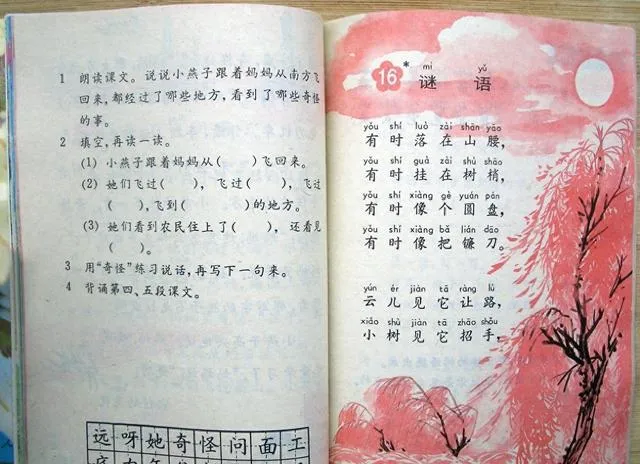 1 朗读课文。说说小燕子跟着妈妈从南方飞
回来,都经过了哪些地方,看到了哪些奇怪
的事。
2 填空,再读一读。
(1) 小燕子跟着妈妈从( )飞回来。
(2) 她们飞过( ), 飞过( ), 飞过
( ),飞到( )的地方。
(3) 她们看到农民住上了( ), 还看见
( )。
3 用“奇怪”练习说话,再写下一句来。
4 背诵第四、五段课文。
远 呀 她 奇 怪 问 面 工
mí yǔ
16* 谜 语
yǒu shí luò zài shān yāo
有 时 落 在 山 腰,
yǒu shí guà zài shù shāo
有 时 挂 在 树 梢,
yǒu shí xiàng gè yuán pán
有 时 像 个 圆 盘,
yǒu shí xiàng bǎ lián dāo
有 时 像 把 镰 刀。
yún ér jiàn tā ràng lù
云 儿 见 它 让 路,
xiǎo shù jiàn tā zhāo shǒu
小 树 见 它 招 手,